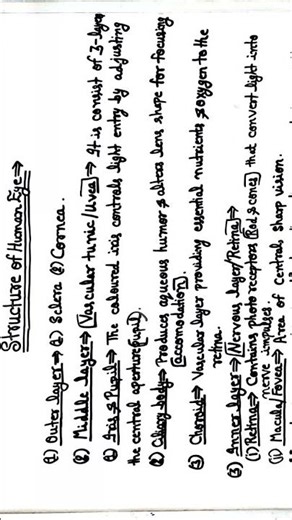 Structure of Human Eye⇒
(1) Outer layer⇒ (1) Sclera (2) Cornea.
(2) Middle layer⇒ Vascular tunic/Uvea ⇒ It is consist of 3-layers
(1) Iris & Pupil⇒ The coloured iris controls light entry by adjusting
the central aperture(pupil).
(2) Ciliary body⇒ Produces aqueous humor & alters lens shape for focusing
(accomodation).
(3) Choroid⇒ Vascular layer providing essential nutrients & oxygen to the
retina.
(3) Inner layer⇒ Nervous layer/Retina⇒
(i) Retina⇒ Contains photo receptors (Rod & cones) that convert light into
nerve impulses
(ii) Macula/Fovea⇒ Area of Central sharp vision.